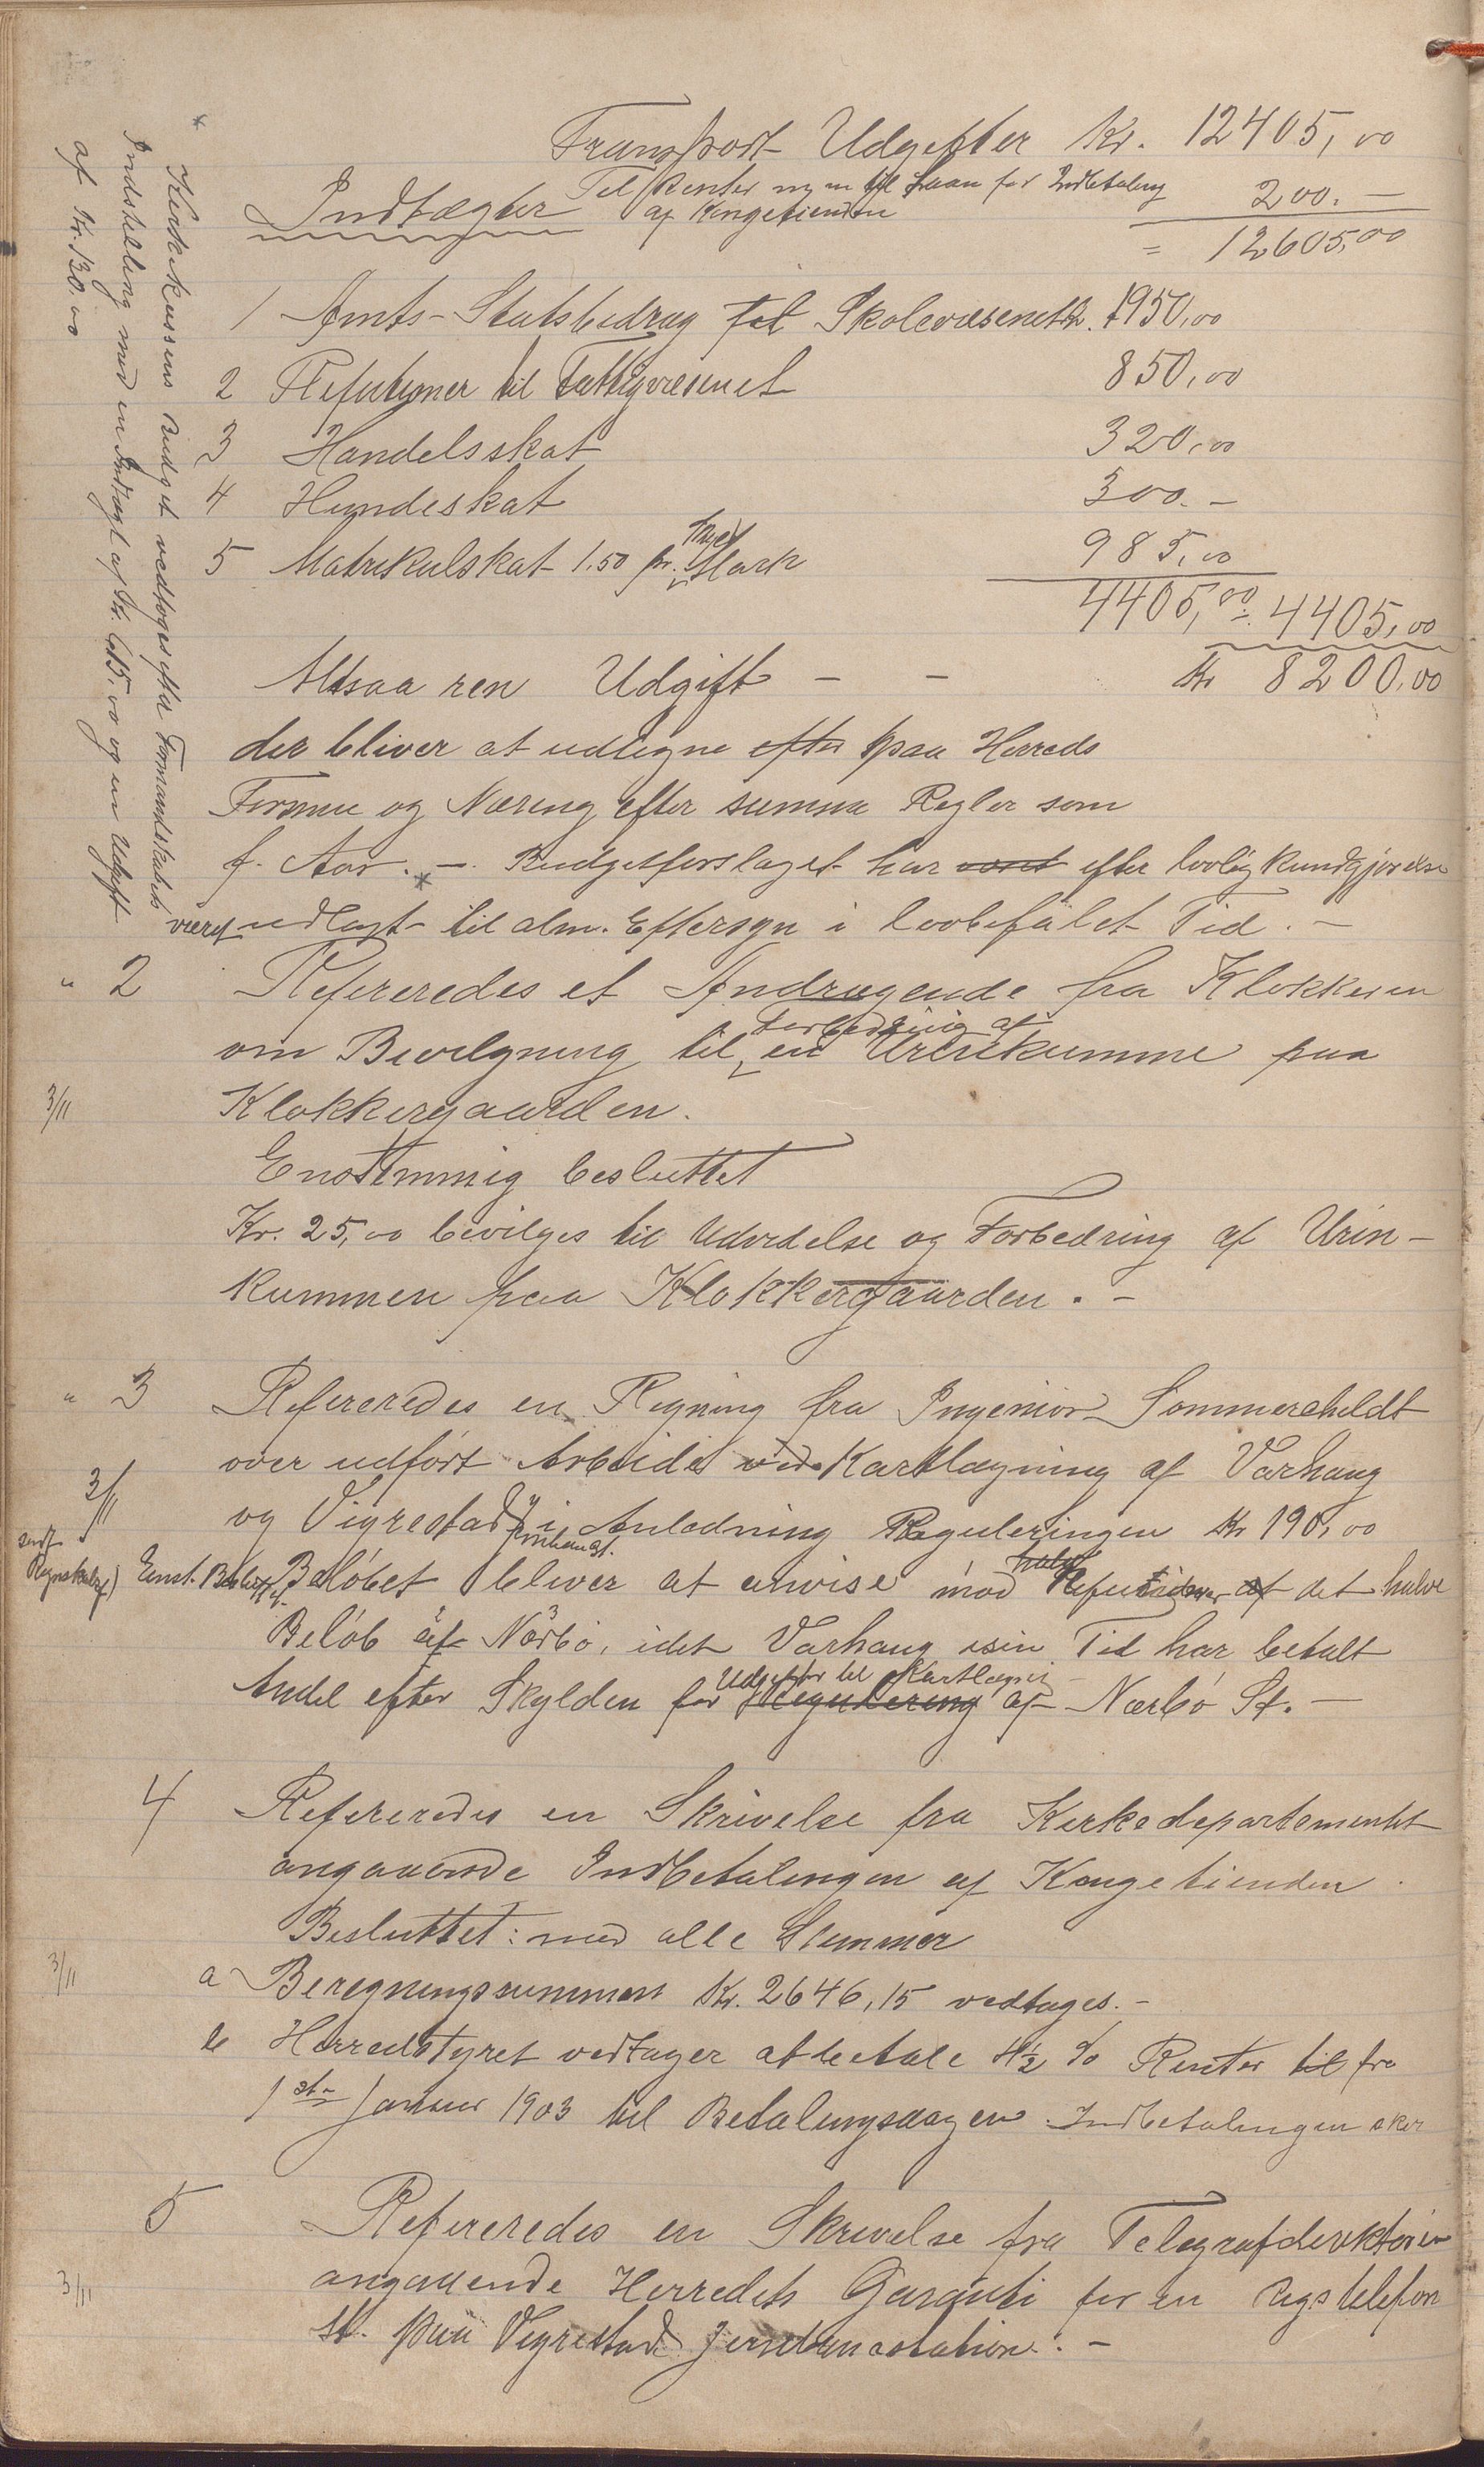 Transport Udgifter Kr. 12405,00
Til Renter m m til Laan for Indbetaling
af Kongetienden 200.-
Indtægter
= 12605,00
1 Amts-Statsbidrag til Skolevæsenet Kr. 1950,00
2 Refusioner til Fattigvæsenet 850,00
3 Handelsskat 320,00
4 Hundeskat 300.-
5 Matrikulskat 1.50 pr. Skyld Mark 985,00
4405,00 = 4405,00
Altsaa ren Udgift - - Kr 8200,00
der bliver at udligne efter paa Herreds
Formue og Næring efter samme Regler som
f. Aar. -. * Budgetforslaget har været efter lovlig Kundgjørelse
været udlagt til alm. Eftersyn i lovbefalet Tid. -
* Kirkekassens Budget vedtoges efter Formandskabets
Indstilling med en Indtægt af Kr. 615,00 og en Udgift
af Kr. 130.00
" 2 Refereredes et Andragende fra Klokkeren
om Bevilgning til Forbedring af en Urinkumme paa
3/11 Klokkergaarden.
Enstemmig besluttet
Kr. 25,00 bevilges til Udvidelse og Forbedring af Urin-
kummen paa Klokkergaarden. -
" 3 Refereredes en Regning fra Ingeniør Sommerscheldt
over udført Arbeide ved Kartlægning af Varhaug
3/11 og Vigrestad i Anledning Reguleringen Kr 190,00
sendt
Regnskabsf) Enst. Besluttet. Beløbet bliver at anvise mod Refusion af det halve
Beløb af Nærbø, idet Varhaug i sin Tid har betalt
Andel efter Skylden for Regulering Udgifter til Kartlægning af Nærbø St. -
4 Refereredes en Skrivelse fra Kirkedepartementet
angaaende Indbetalingen af Kongetienden.
Besluttet: med alle Stemmer
3/11 a Beregningssummen Kr. 2646,15 vedtages. -
b Herredstyret vedtager at betale 4½ % Renter til fra
1ste Januar 1903 til Betalingsdagen. Indbetalingen sker
5 Refereredes en Skrivelse fra Telegrafdirektøren
3/11 angaaende Herredets Garanti for en Rigstelefon
st. paa Vigrestad Jernbanestation. -